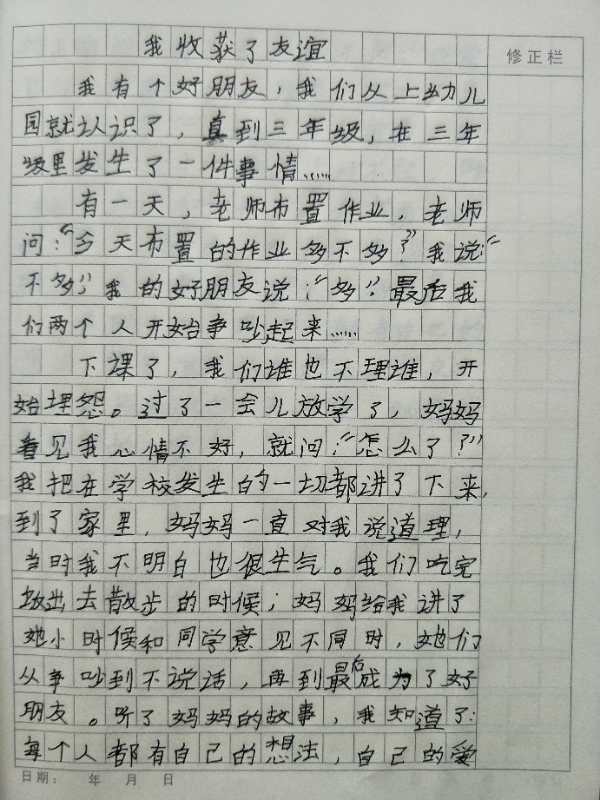 我收获了友谊
修正栏
我有个好朋友，我们从上幼儿
园就认识了，真到三年级，在三年
级里发生了一件事情……
有一天，老师布置作业，老师
问：“今天布置的作业多不多？”我说：“
不多”，我的好朋友说：“多”，最后我
们两个人开始争吵起来……
下课了，我们谁也不理谁，开
始埋怨。过了一会儿放学了，妈妈
看见我心情不好，就问：“怎么了？”
我把在学校发生的一切都讲了下来，
到了家里，妈妈一直对我说道理，
当时我不明白也很生气。我们吃完
饭出去散步的时候；妈妈给我讲了
她小时候和同学意见不同时，她们
从争吵到不说话，再到最后成为了好
朋友。听了妈妈的故事，我知道了：
每个人都有自己的想法，自己的爱
日期： 年 月 日